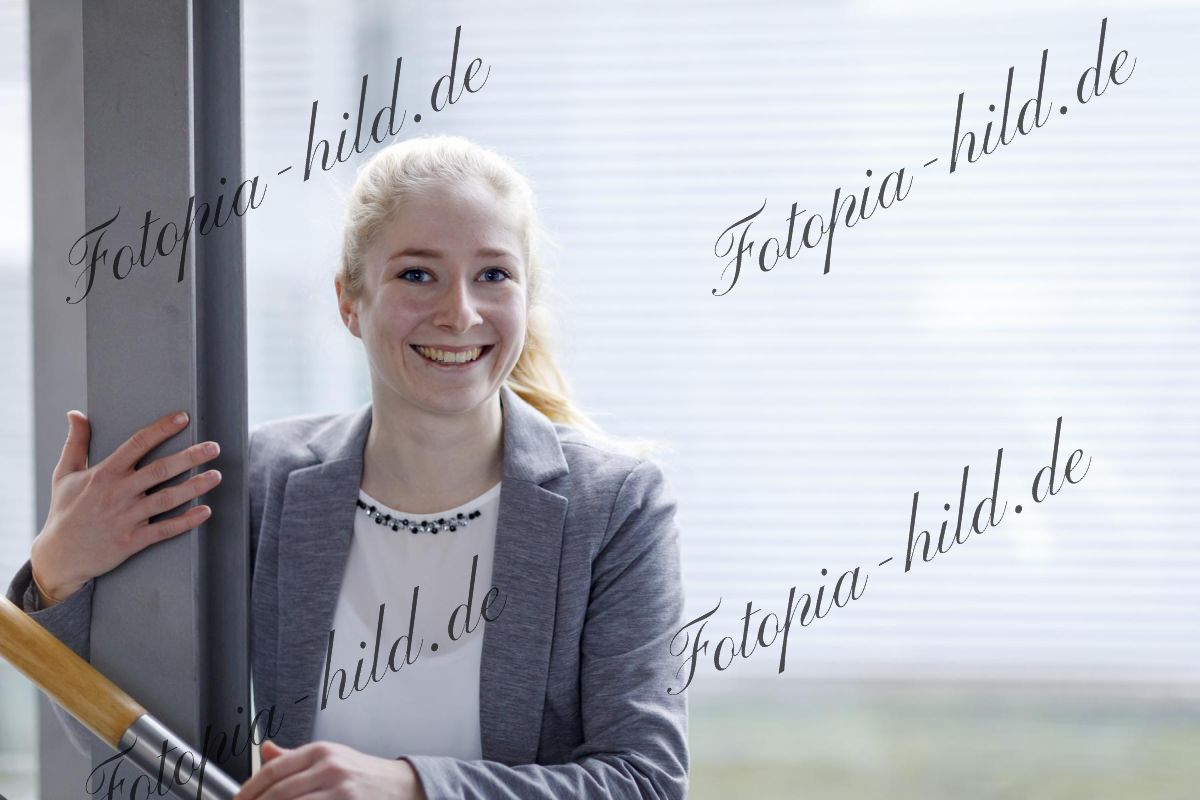 Fotopia-hild.de
Fotopia-hild.de
Fotopia-hild.de
Fotopia-hild.de